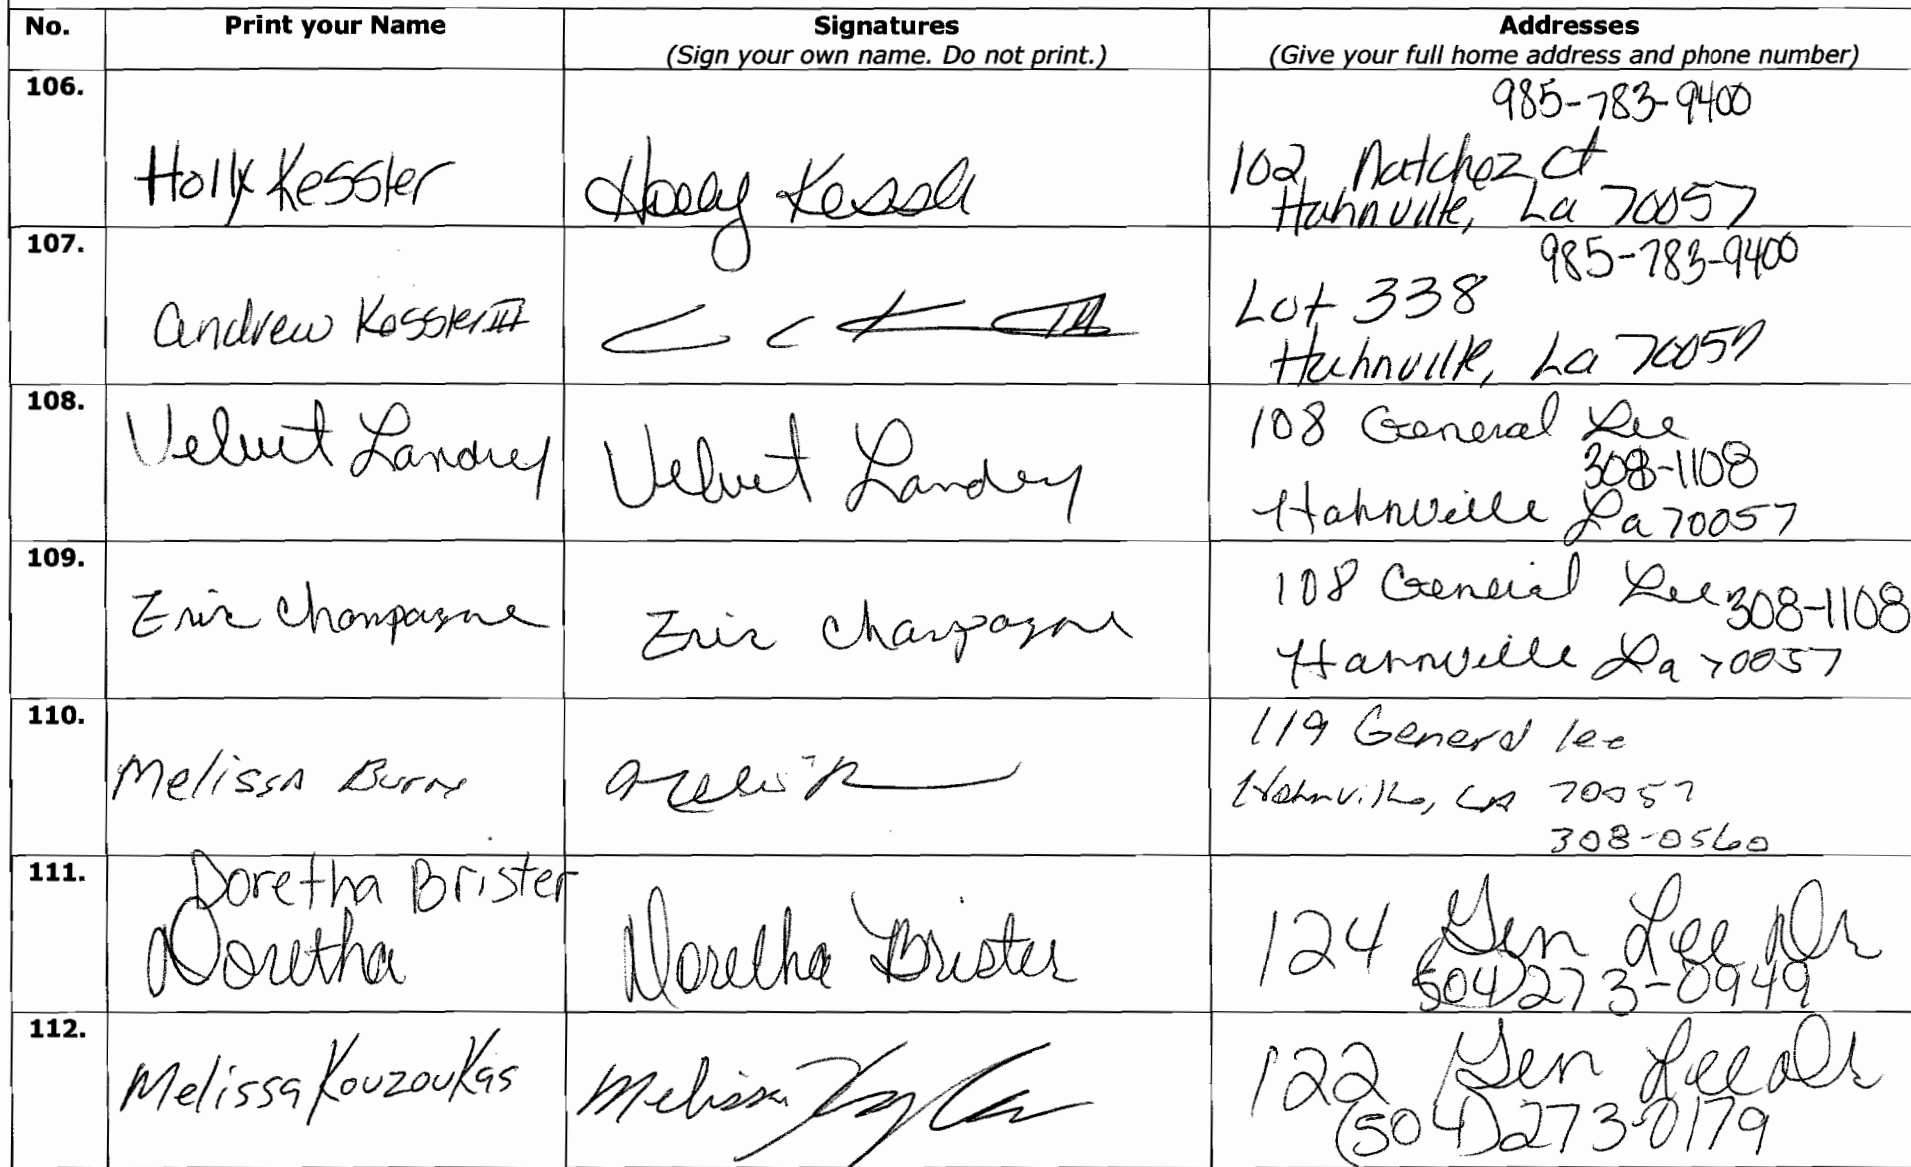 No. Print your Name Signatures Addresses
(Sign your own name. Do not print.) (Give your full home address and phone number)
106.
985-783-9400
Holly Kessler Holly Kessler 102 Natchez Ct
Hahnville, La 70057
107.
985-783-9400
Andrew Kessler III Lot 338
Hahnville, La 70057
108.
Velvet Landry Velvet Landry 108 General Lee
308-1108
Hahnville La 70057
109.
Eric Champagne Eric Champagne 108 General Lee 308-1108
Hahnville La 70057
110.
119 General lee
Melissa Hahnville, LA 70057
308-0560
111.
Doretha Brister
Doretha Doretha Brister 124 Gen Lee Dr
(504) 273-0949
112.
Melissa Kouzoukas Melissa 122 Gen Lee Dr
(504) 273-0179